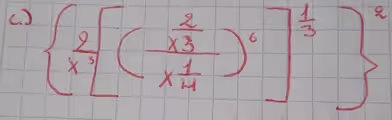 c) { 2/x³ [ ( x^(2/3) / x^(1/4) )⁶ ]^(1/3) }²